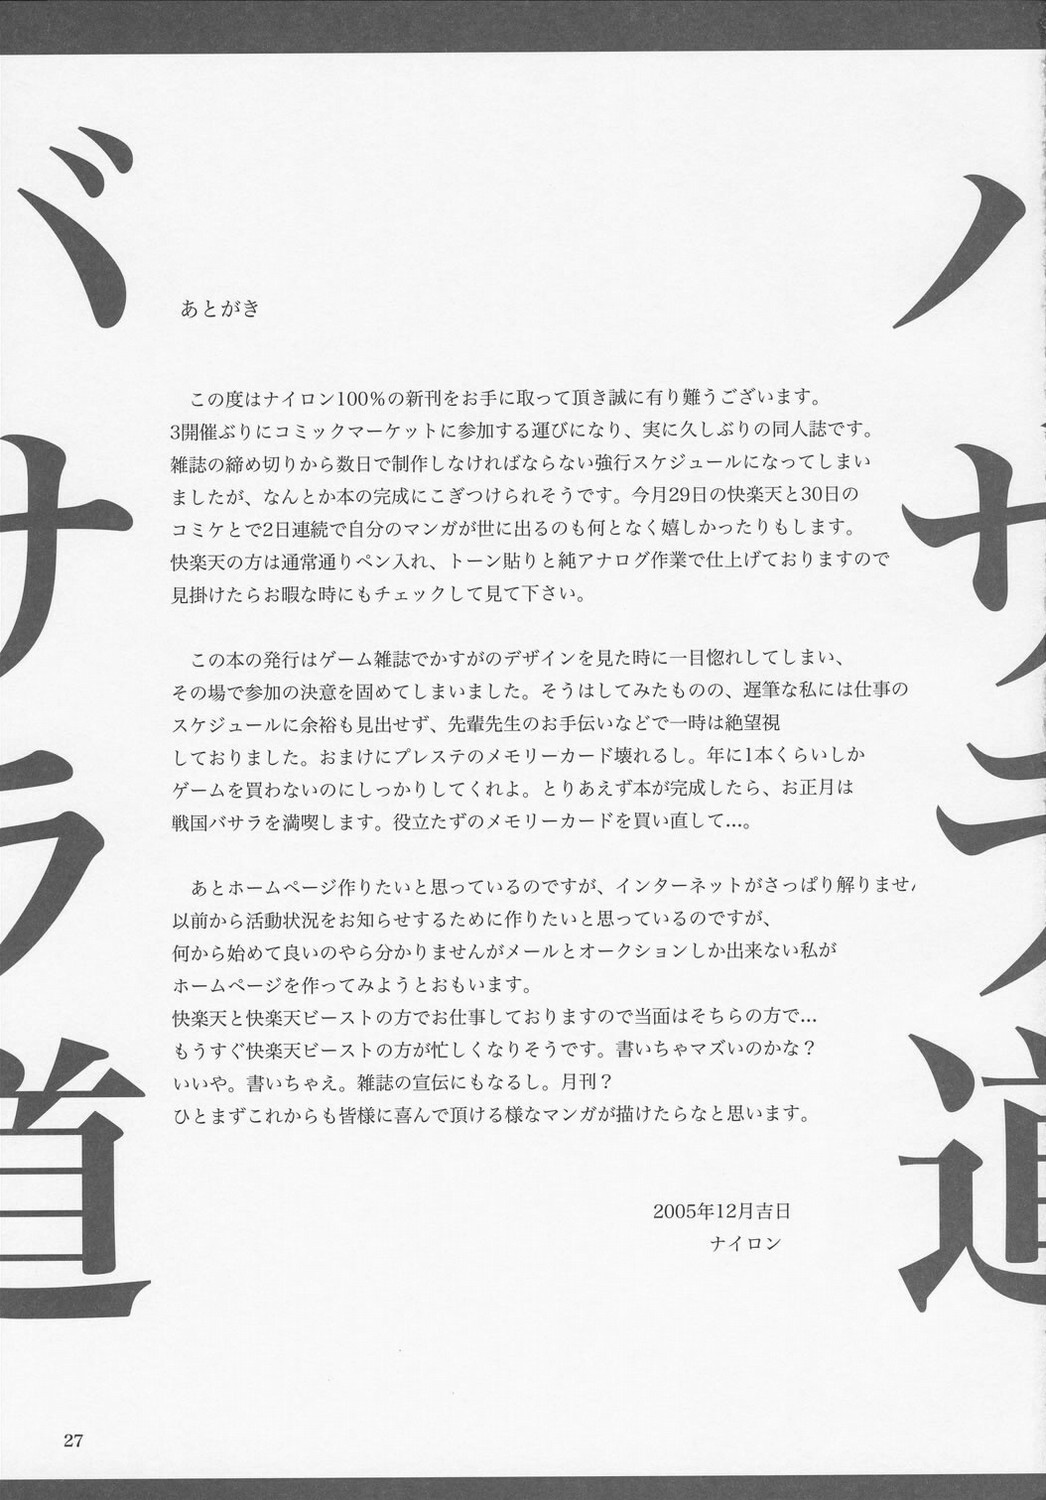 バサラ道
バサラ道
あとがき
この度はナイロン100％の新刊をお手に取って頂き誠に有り難うございます。
3開催ぶりにコミックマーケットに参加する運びになり、実に久しぶりの同人誌です。
雑誌の締め切りから数日で制作しなければならない強行スケジュールになってしまい
ましたが、なんとか本の完成にこぎつけられそうです。今月29日の快楽天と30日の
コミケとで2日連続で自分のマンガが世に出るのも何となく嬉しかったりもします。
快楽天の方は通常通りペン入れ、トーン貼りと純アナログ作業で仕上げておりますので
見掛けたらお暇な時にもチェックして見て下さい。
この本の発行はゲーム雑誌でかすがのデザインを見た時に一目惚れしてしまい、
その場で参加の決意を固めてしまいました。そうはしてみたものの、遅筆な私には仕事の
スケジュールに余裕も見出せず、先輩先生のお手伝いなどで一時は絶望視
しておりました。おまけにプレステのメモリーカード壊れるし。年に1本くらいしか
ゲームを買わないのにしっかりしてくれよ。とりあえず本が完成したら、お正月は
戦国バサラを満喫します。役立たずのメモリーカードを買い直して…。
あとホームページ作りたいと思っているのですが、インターネットがさっぱり解りません
以前から活動状況をお知らせするために作りたいと思っているのですが、
何から始めて良いのやら分かりませんがメールとオークションしか出来ない私が
ホームページを作ってみようとおもいます。
快楽天と快楽天ビーストの方でお仕事しておりますので当面はそちらの方で…
もうすぐ快楽天ビーストの方が忙しくなりそうです。書いちゃマズいのかな？
いいや。書いちゃえ。雑誌の宣伝にもなるし。月刊？
ひとまずこれからも皆様に喜んで頂ける様なマンガが描けたらなと思います。
2005年12月吉日
ナイロン
27